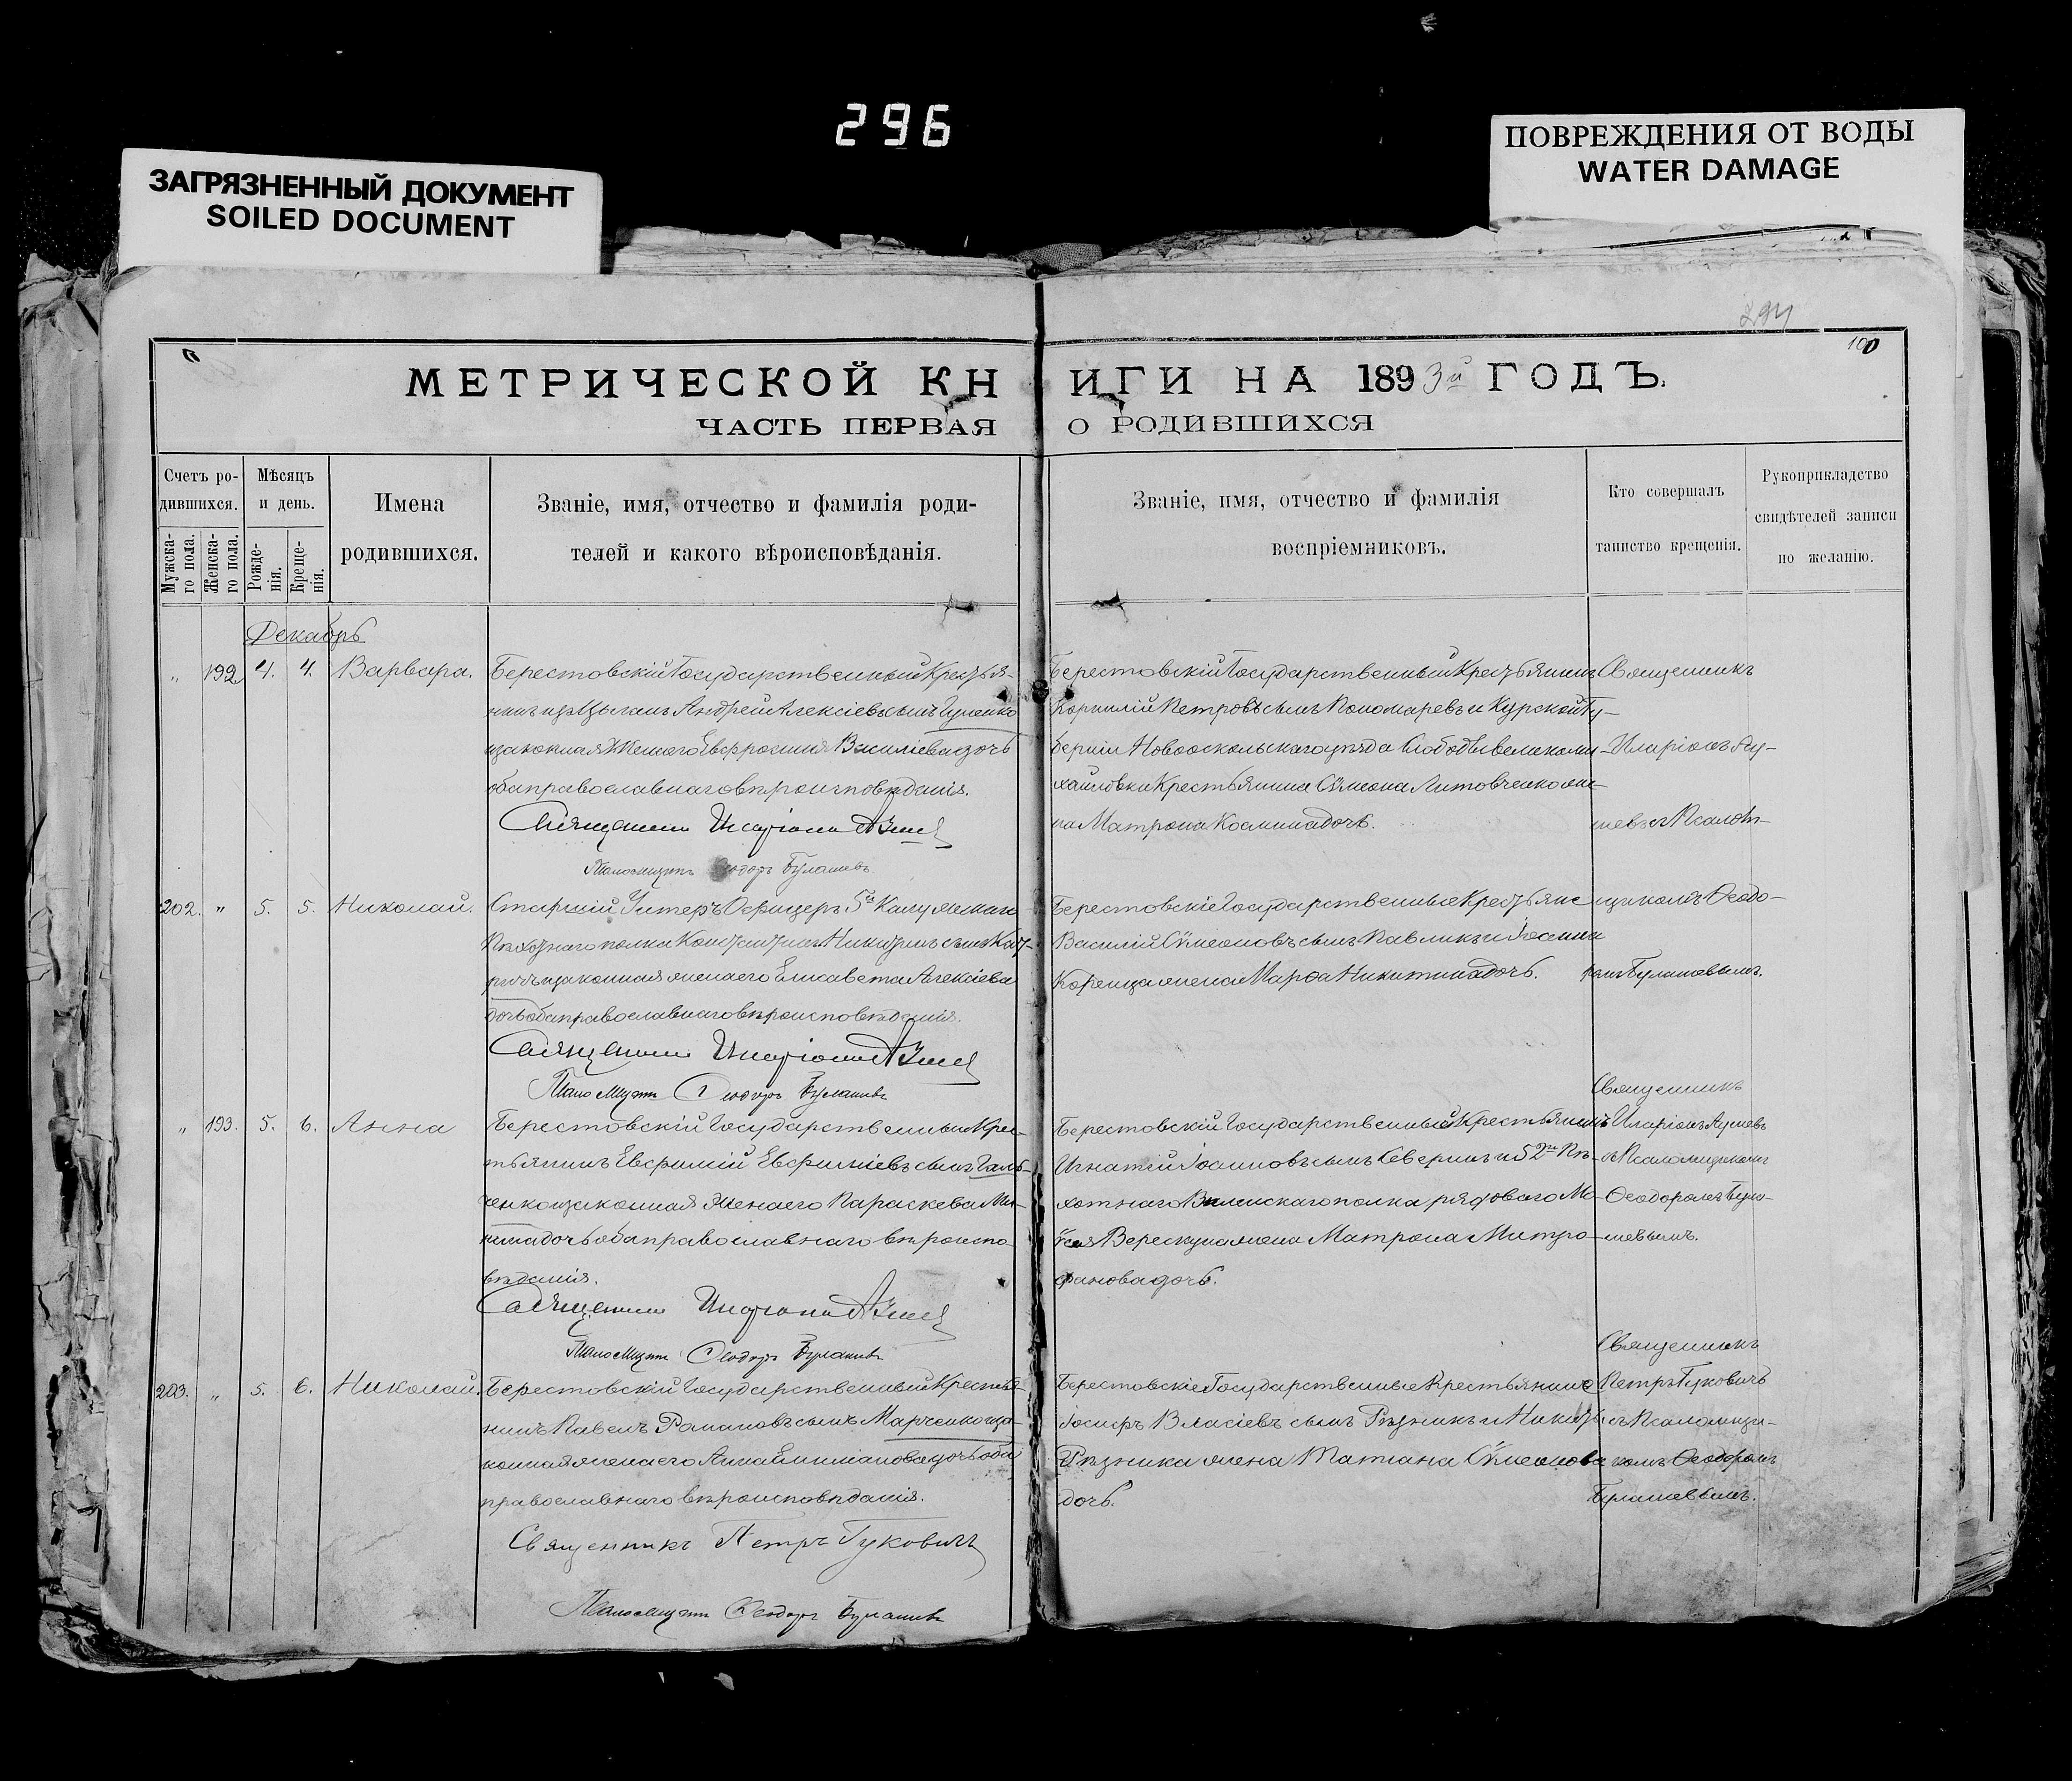 296
ЗАГРЯЗНЕННЫЙ ДОКУМЕНТ
SOILED DOCUMENT
ПОВРЕЖДЕНИЯ ОТ ВОДЫ
WATER DAMAGE
294
100
МЕТРИЧЕСКОЙ КНИГИ НА 1893й ГОДЪ.
ЧАСТЬ ПЕРВАЯ О РОДИВШИХСЯ
Счетъ ро-
дившихся.
Мужска-
го пола.
Женска-
го пола.
Мѣсяцъ
и день.
Рожде-
нія.
Креще-
нія.
Имена
родившихся.
Званіе, имя, отчество и фамилія роди-
телей и какого вѣроисповѣданія.
Званіе, имя, отчество и фамилія
воспріемниковъ.
Кто совершалъ
таинство крещенія.
Рукоприкладство
свидѣтелей записи
по желанію.
Декабрь
„ 192 4. 4. Варвара.
Берестовскій Государственный Крестья-
нинъ изъ Цыганъ Андрей Алексіевъ сынъ
законная жена его Евфросинія Василіева дочь
оба православнаго вѣроисповѣданія.
Священникъ Иларіонъ
Псаломщикъ Ѳеодоръ Булашевъ
Берестовскій Государственный Крестьянинъ
Корнилій Петровъ сынъ Пономаревъ и Курской Гу-
берніи Новооскольскаго уѣзда Слободы Великоми-
хайловки Крестьянина Сѵмеона Литовченко же-
на Матрона Космина дочь.
Священникъ
Иларіонъ
съ Псалом-
202. „ 5. 5. Николай.
Старшій Унтеръ Офицеръ 5го Калужскаго
Пѣхотнаго полка Никитинъ сынъ
законная жена его Елисавета Алексіева
дочь оба православнаго вѣроисповѣданія.
Священникъ Иларіонъ
Псаломщикъ Ѳеодоръ Булашевъ
Берестовскіе Государственные Крестьяне
Василій Сѵмеоновъ сынъ Павликъ и Іоанна
жена Марѳа Никитина дочь.
щикомъ Ѳеодо-
ромъ Булашевымъ.
„ 193. 5. 6. Анна
Берестовскій Государственный Крес-
тьянинъ Евфимій Евфиміевъ сынъ Галь-
ченко законная жена его Параскева
дочь оба православнаго вѣроиспо-
вѣданія.
Священникъ Иларіонъ
Псаломщикъ Ѳеодоръ Булашевъ
Берестовскій Государственный Крестьянинъ
Игнатій Іоанновъ сынъ Северинъ и 52го Пѣ-
хотнаго Виленскаго полка рядоваго Мо-
ѵсея жена Матрона Митро-
фанова дочь.
Священникъ
Иларіонъ
съ Псаломщикомъ
Ѳеодоромъ Була-
шевымъ.
203. „ 5. 6. Николай.
Берестовскій Государственный Крестья-
нинъ Павелъ Романовъ сынъ Марченко за-
конная жена его Анна Емиліанова дочь оба
православнаго вѣроисповѣданія.
Священникъ Петръ Гуковичъ
Псаломщикъ Ѳеодоръ Булашевъ
Берестовскіе Государственные Крестьянинъ
Іосифъ Власіевъ сынъ Рѣзникъ и Никиты
Рѣзника жена Татіана Сѵмеонова
дочь.
Священникъ
Петръ Гуковичъ
съ Псаломщи-
комъ Ѳеодоромъ
Булашевымъ.